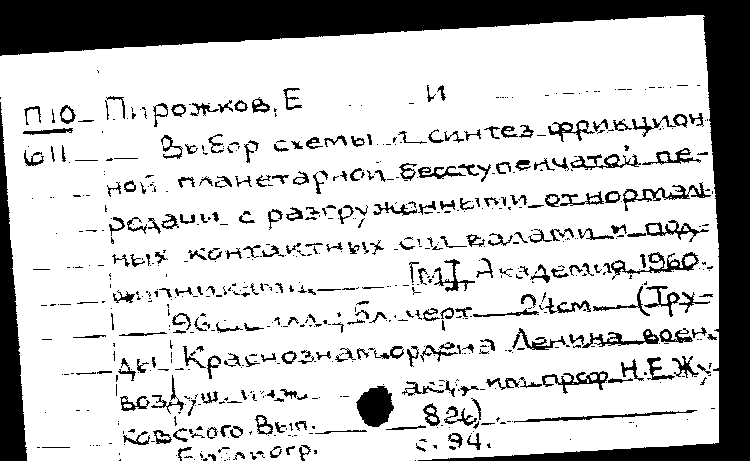 П10 Пирожков, Е И
611 Выбор схемы и синтез фрикцион-
ной планетарной бесступенчатой пе-
редачи с разгруженными от нормаль-
ных контактных сил валами и под-
шипниками. [М.], Академия, 1960.
96 с. илл.; 5 л. черт. 24 см. (Тру-
ды Краснознам. ордена Ленина воен.
воздуш. инж. акад. им. проф. Н.Е.Жу-
ковского. Вып. 826).
Библиогр. с. 94.